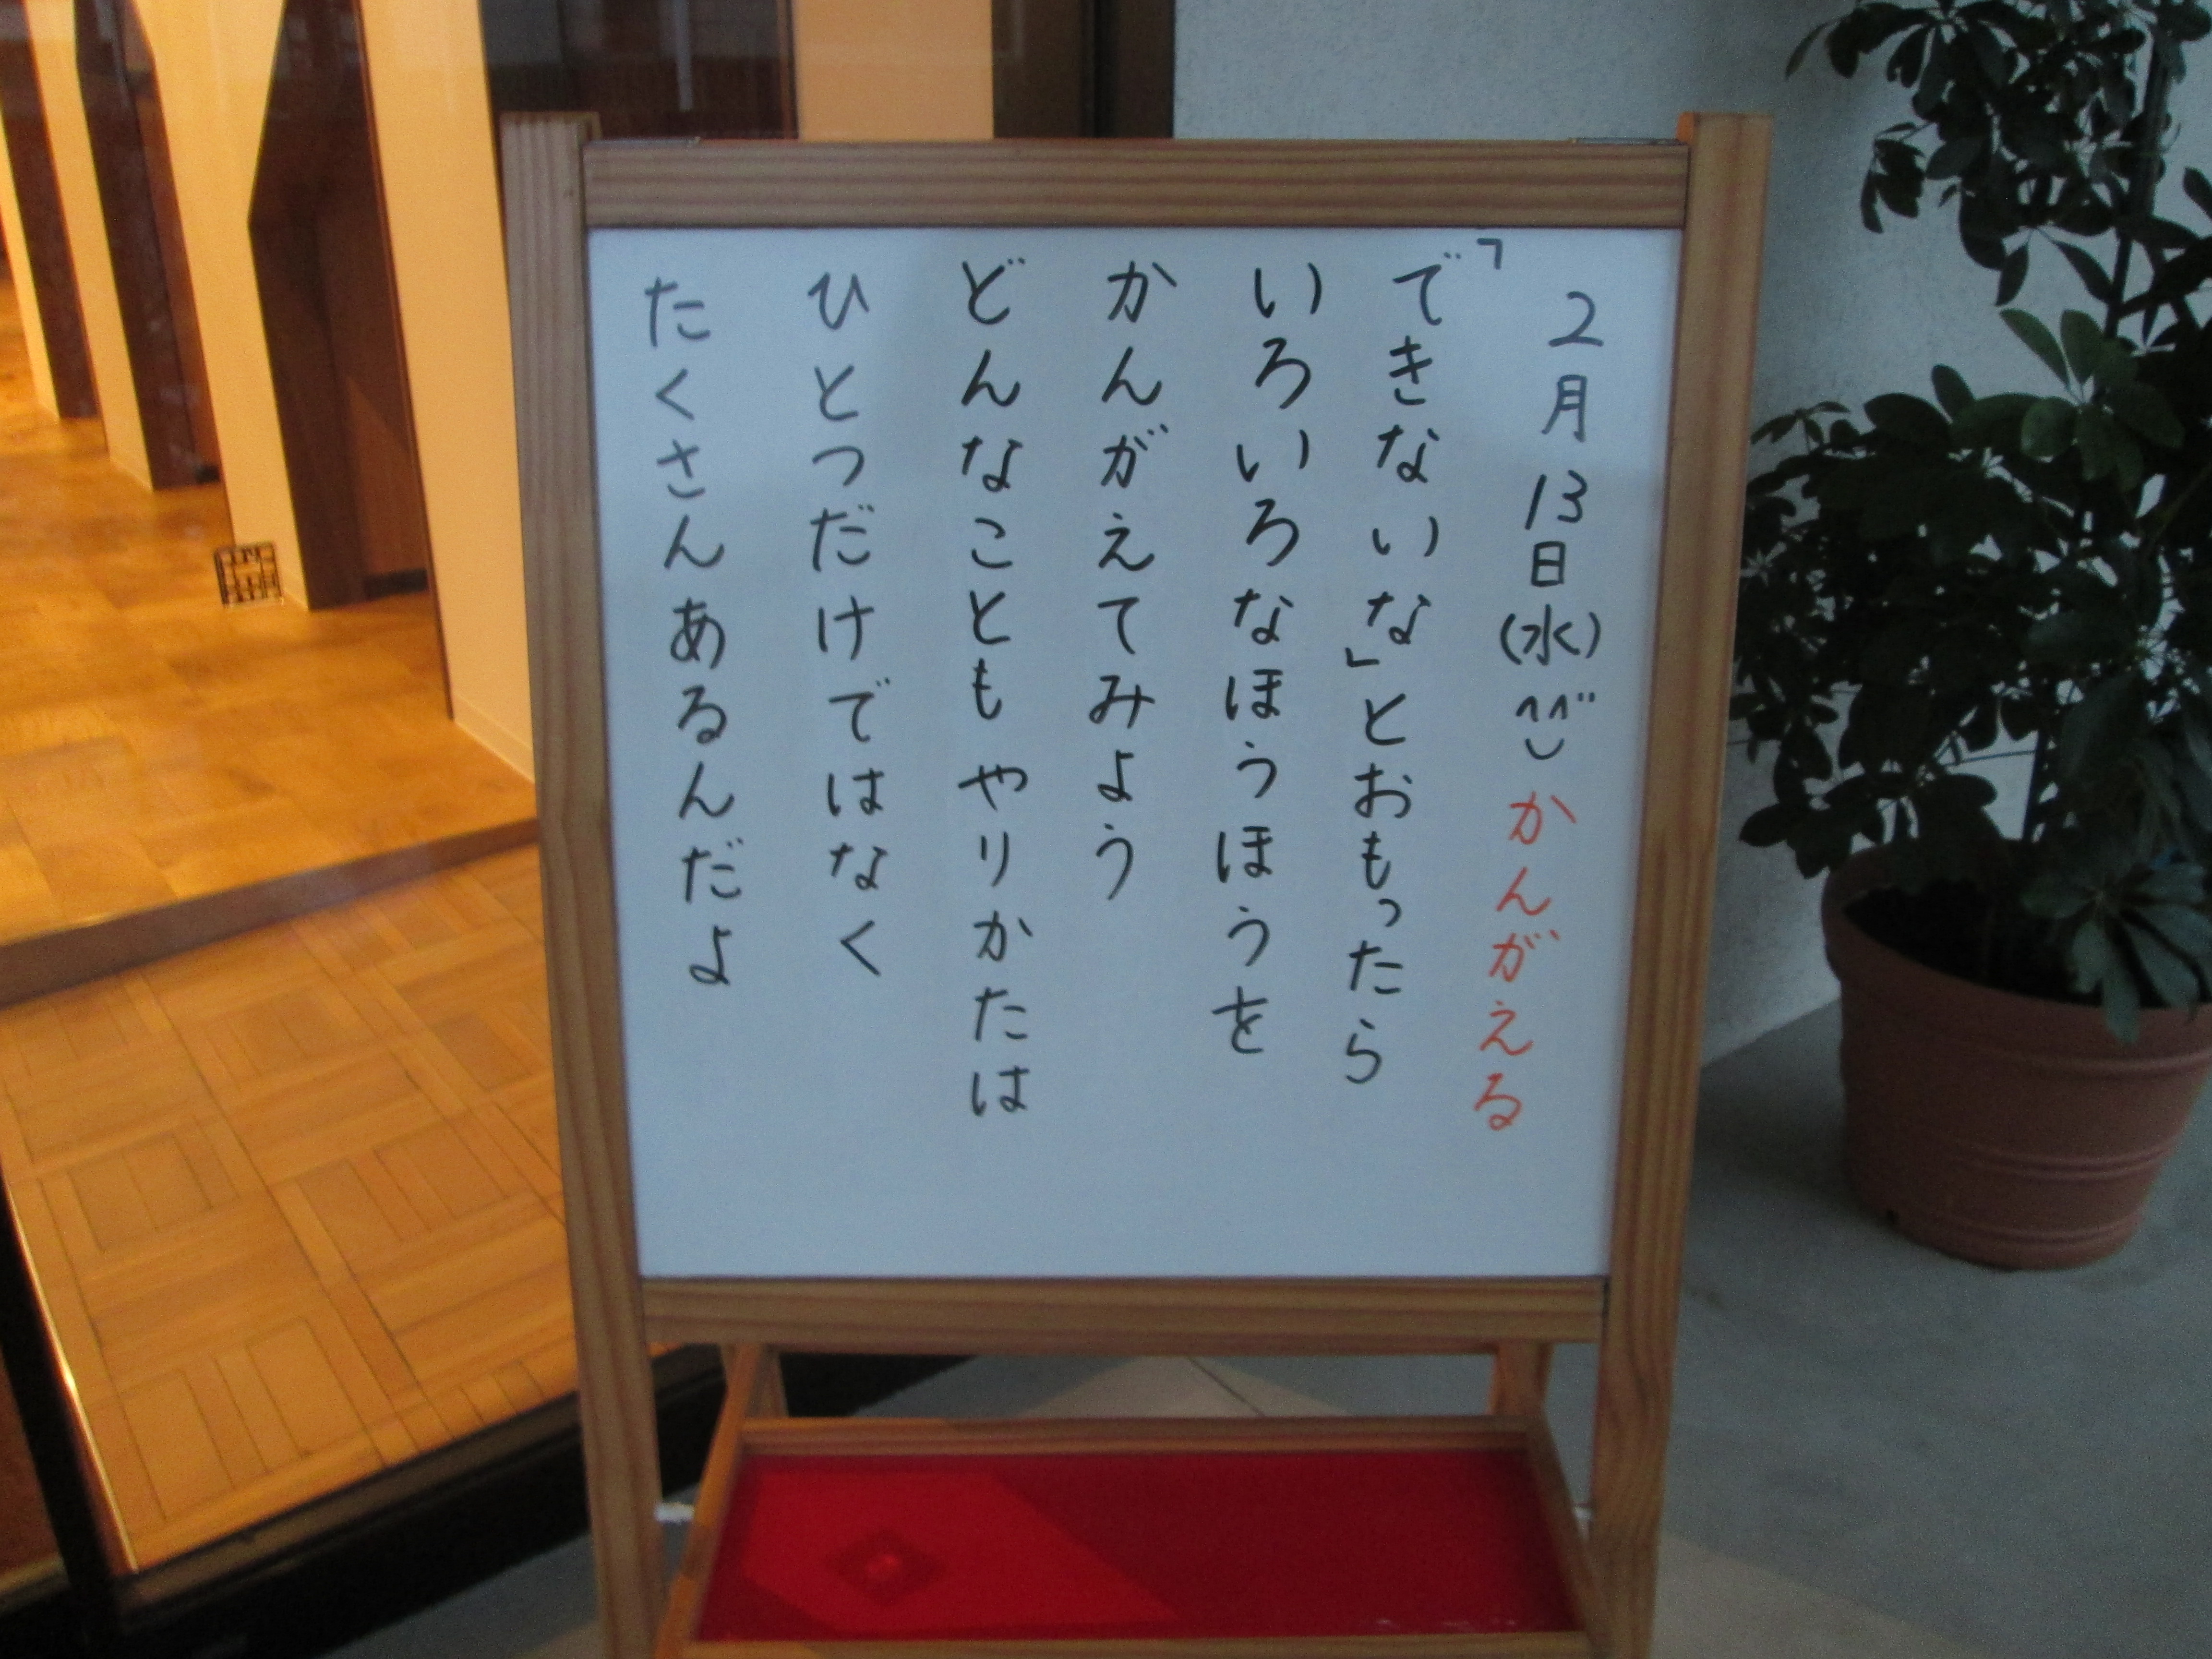 2月13日(水)^^かんがえる
「できないな」とおもったら
いろいろなほうほうを
かんがえてみよう
どんなこともやりかたは
ひとつだけではなく
たくさんあるんだよ